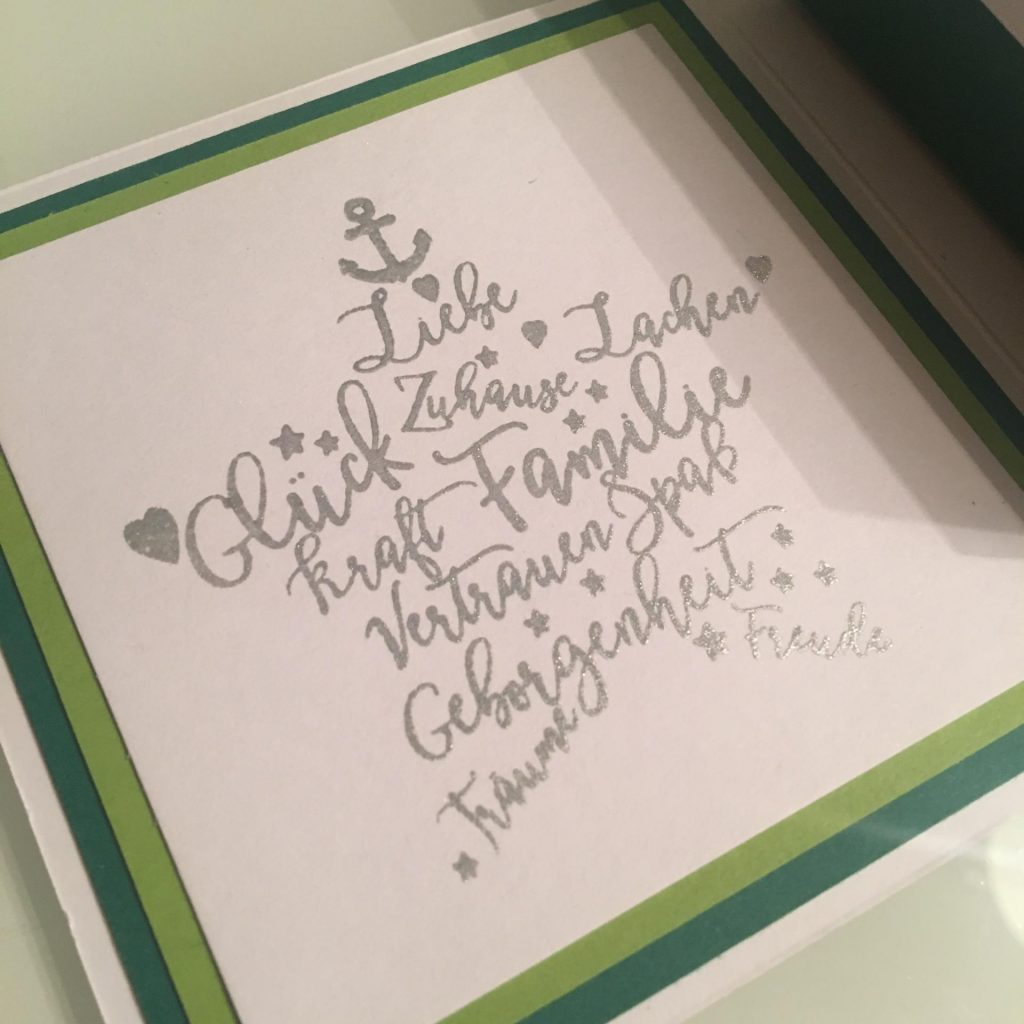 Liebe
Lachen
Zuhause
Glück
Familie
kraft
Spaß
Vertrauen
Geborgenheit
Freude
Träume